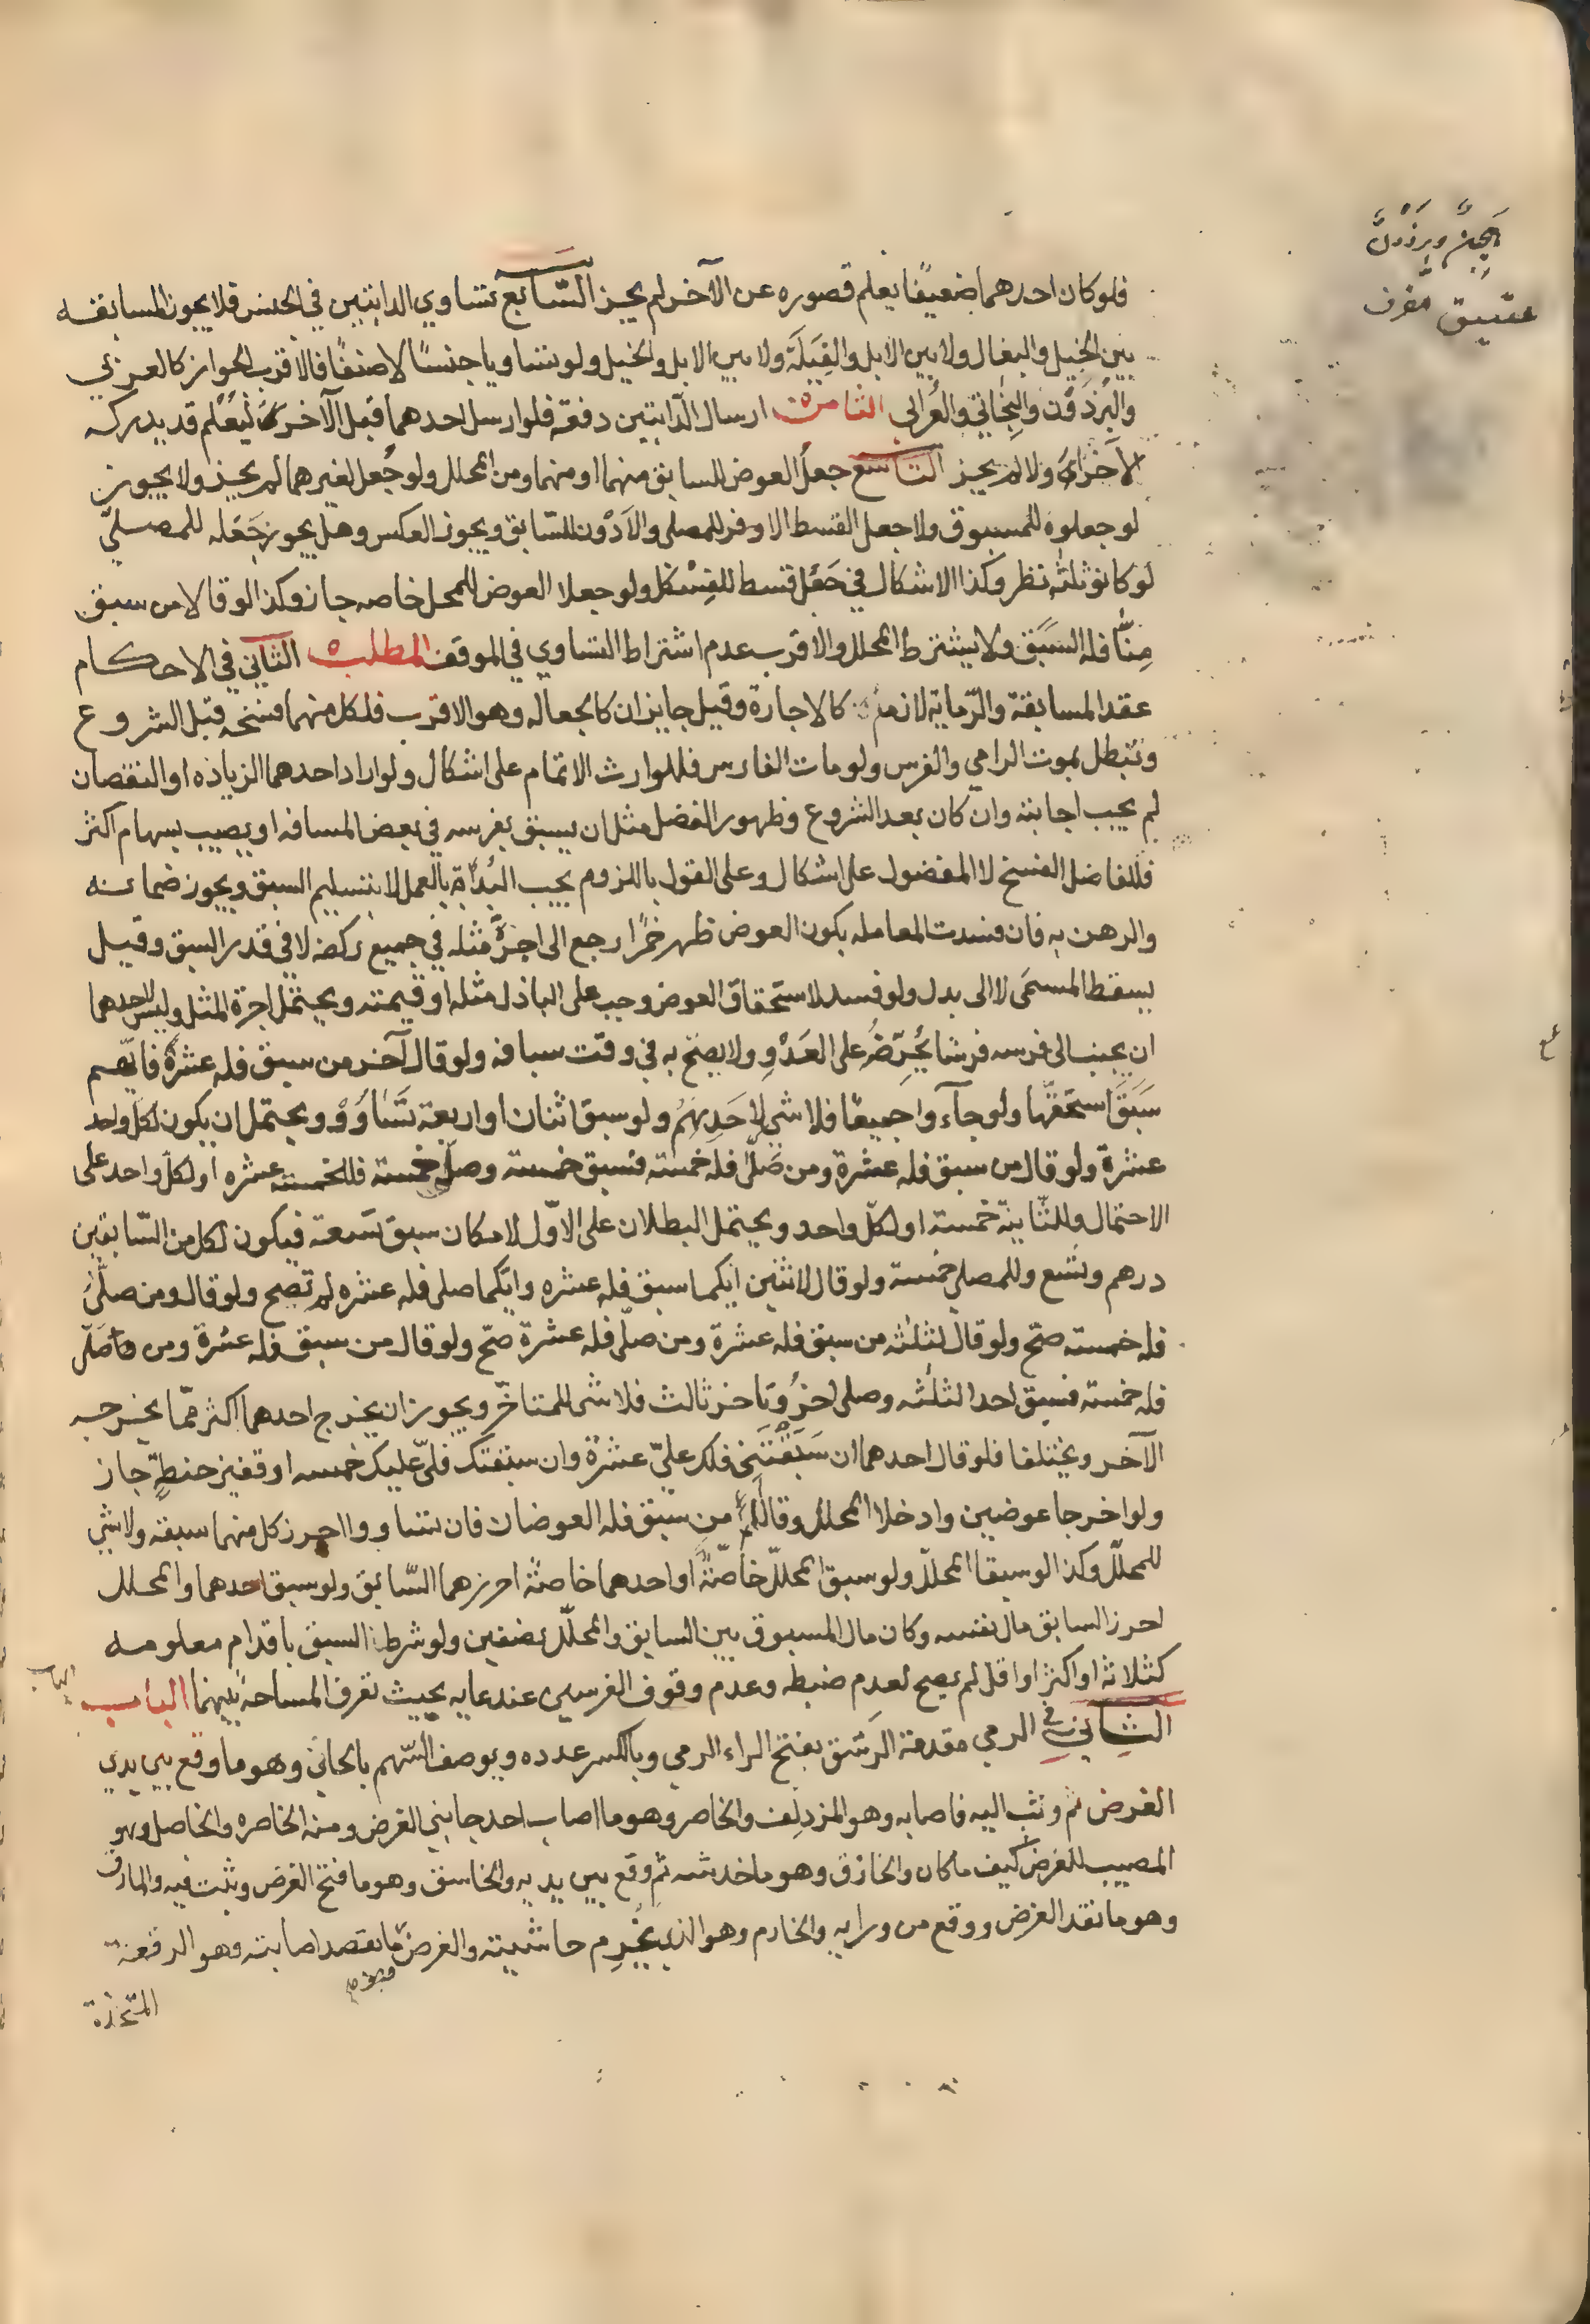 هجين وبرذون
عتيق مقرف
فلو كان احدهما ضعيفًا يعلم قصوره عن الآخر لم يجز السّابع تساوي الدابتين في الجنس فلا يجوز المسابقه
بين الخيل والبغال ولا بين الابل والفِيَلَة ولا بين الابل والخيل ولو تساويا جنسًا لا صنفًا فالاقرب الجواز كالعربي
والبرذون والبخاتي والعرابي الثامن ارسال الدّابتين دفعة فلو ارسل احدهما قبل الآخر ليعلم قد يدركه
الآخر ولا لم يجز التاسع جعل العوض للسابق منهما او منهما ومن المحلل ولو جعل لغيرهما لم يجز ولا يجوز
لو جعلوه للمسبوق ولا جعل القسط الاوفر للمصلى والادون للسّابق ويجوز العكس وهل يجوز جعله للمصلّي
لو كانو ثلثه نظر وكذا الاشكال في جعل قسط للفِسْكل ولو جعلا العوض للمحل خاصه جاز وكذا لو قالا من سبق
مِنّا فله السَبَق ولا يشترط المحلل والاقرب عدم اشتراط التساوي في الموقف المطلب الثاني في الاحكام
عقد المسابقة والرّماية لازم كالاجارة وقيل جايزان كالجعاله وهو الاقرب فلكل منهما فسخه قبل الشروع
وتبطل بموت الرامي والفرس ولو مات الفارس فللوارث الاتمام على اشكال ولو اراد احدهما الزياده او النقصان
لم يجب اجابته وان كان بعد الشروع وظهور الفضل مثل ان يسبق بفرسه في بعض المسافه او يصيب بسهام اكثر
فللفاضل الفسخ لا المفضول على اشكال وعلى القول باللزوم يجب البُدأة بالعمل لا بتسليم السبق ويجوز ضمانه
والرهن به فان فسدت المعامله بكون العوض ظهر خمرًا رجع الى اجرة مثله في جميع ركضه لا في قدر السبق وقيل
يسقط المسمى لا الى بدل ولو فسد لاستحقاق العوض وجب على الباذل مثله او قيمته ويحتمل اجرة المثل وليس لاحدهما
ان يجنب الى فرسه فرسًا يُحَرِّضُه على العَدْوِ ولا يصيح به في وقت سباقه ولو قال آخر من سبق فله عشرة فايّهم
سَبَقَ استحقّها ولو جآءوا جميعًا فلا شي لِاَحَدِهِمْ ولو سبق اثنان او اربعة تَسَاوَوْا ويحتمل ان يكون لكل واحد
عشرة ولو قال من سبق فله عشرة ومن صلّى فله خمسة فسبق خمسة وصلّى خمسة فللخمسة عشره او لكل واحد على
الاحتمال وللثّانية خمسة او لكلّ واحد ويحتمل البطلان على الاوّل لامكان سبق تسعة فيكون لكل من السّابقين
درهم وتسع وللمصلي خمسة ولو قال لاثنين ايكما سبق فله عشره وايّكما صلى فله عشره لم تصح ولو قال ومن صلّى
فله خمسة صحّ ولو قال لثلثه من سبق فله عشرة ومن صلّى فله عشرة صحّ ولو قال من سبق فله عشرة ومن صلّى
فله خمسة فسبق احد الثلثه وصلى اخر وتاخر ثالث فلا شى للمتاخّر ويجوز ان يخرج احدهما اكثر ممّا يخرجه
الآخر ويختلفا فلو قال احدهما ان سَبَقْتَنِي فلك عليّ عشرة وان سبقتك فلي عليك خمسه او قفيز حنطةٍ جاز
ولو اخرجا عوضين وادخلا المحلل وقالا من سبق فله العوضان فان تساووا احرز كل منهما سبقه ولا شي
للمحلّل وكذا لو سبقا المحلل ولو سبق المحللّ خاصّةً او احدهما خاصة احرزهما السّابق ولو سبق احدهما والمحلل
احرز السابق مال نفسه وكان مال المسبوق بين السابق والمحلّل نصفين ولو شرط السبق باقدام معلومه
كثلاثة او اكثر او اقل لم يصح لعدم ضبطه وعدم وقوف الفرسين عند غايه بحيث تعرف المساحة بينهما الباب
الثاني في الرمي مقدمة الرشق بفتح الراء الرمي وبالكسر عدده ويوصف السّهم بالحابي وهو ما وقع بين يدي
الغرض ثم وثب اليه فاصابه وهو المزدلِف والخاصر وهو ما اصاب احد جانبي الغرض ومنه الخاصره والخاصل وهو
المصيب للغرض كيف ما كان والخازق وهو ما خدشه ثم وقع بين يديه والخاسق وهو ما فتح الغرض وثبت فيه والمارق
وهو ما نفذ الغرض ووقع من ورايه والخارم وهو الذي يخرِم حاشيته والغرض ما تقصد اصابته وهو الرقعة
المتخذة